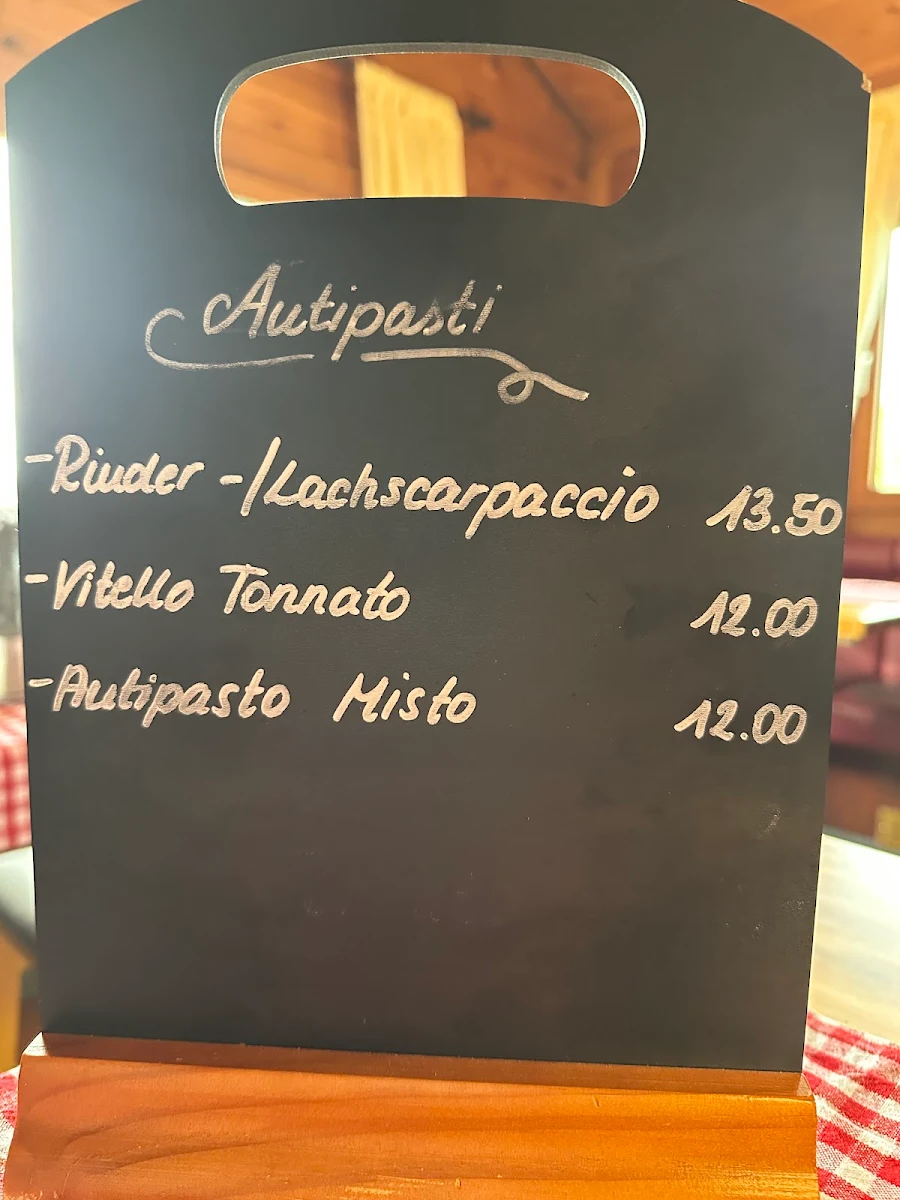 Antipasti
-Rinder -/Lachscarpaccio 13.50
-Vitello Tonnato 12.00
-Antipasto Misto 12.00